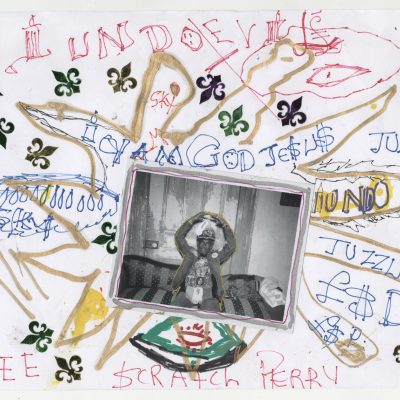 I UNDOEVI£$
SKY
i AM GOD JE$U$ JU
IUNO
JUZZL
£$D
£$D.
EE $CRATCH PERRY